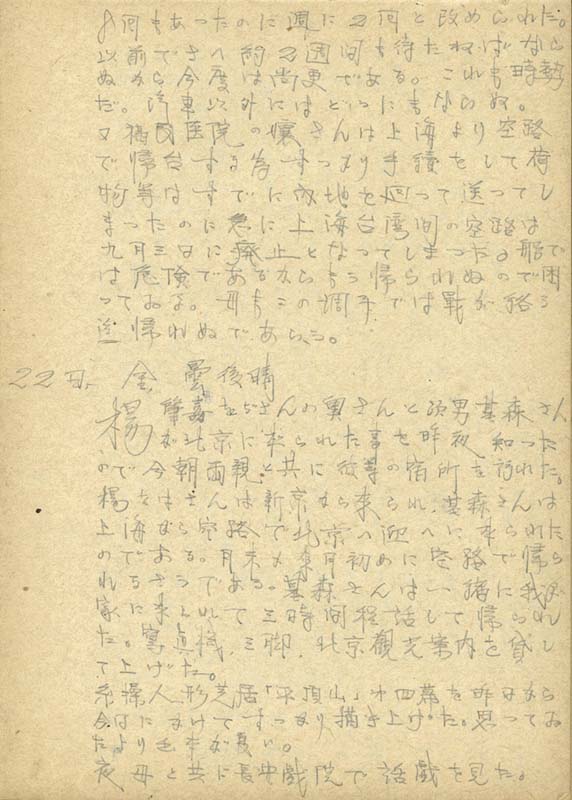 何もあったのに週に2河と改められた。
以前でさへ約2週间も待たねばなら
ぬから今度は尚更である。これも時勢
だ。汽車以外にはどうにもならぬ。
又 福民医院の嬢さんは上海より空路
で帰台する為すっかり手續をして荷
物等はすでに内地を廻って送ってし
まったのに急に上海台湾间の空路は
九月三日に廃止となってしまった。船で
は危険であるからもう帰られぬので困
っておる。母もこの調子では戰が終る
迄帰れぬであらう。
22日. 金 曇後晴
楊肇嘉をぢさんの奥さんと次男基森さん
が北京に来られた事を昨夜知った
ので今朝両親と共に彼等の宿所を訪れた。
楊をばさんは新京から来られ、基森さんは
上海から空路で北京へ迎へに来られた
のである。月末か来月初めに空路で帰ら
れるさうである。基森さんは一緒に我が
家に来られて三時间程話して帰られ
た。寫真機、三脚、北京觀光案内を貸し
て上げた。
糸操人形芝居「平頂山」第四幕を昨日から
今日にかけてすっかり描き上げた。思ってお
たより毛本が長い。
夜 母と共に長安戯院で話戯を見た。